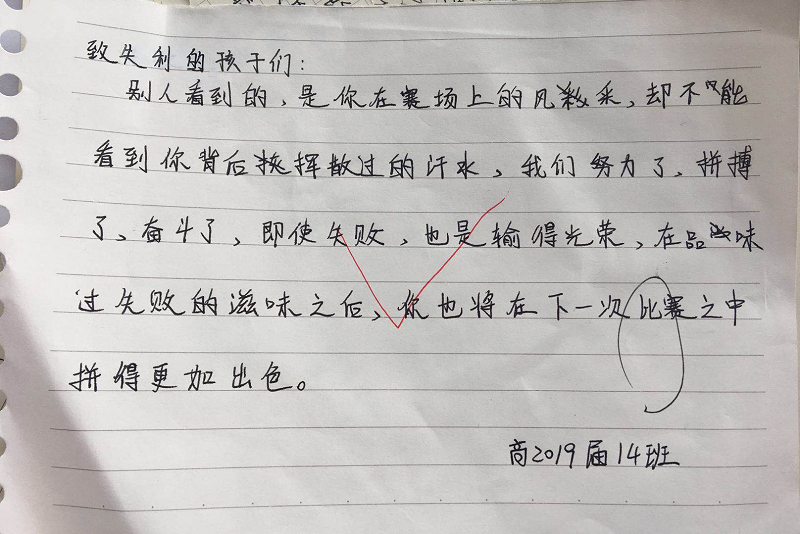 致失利的孩子们：
别人看到的，是你在赛场上的风采，却不能
看到你背后挥散过的汗水，我们努力了，拼搏
了，奋斗了，即使失败，也是输得光荣，在品味
过失败的滋味之后，你也将在下一次比赛之中
拼得更加出色。
高2019届14班